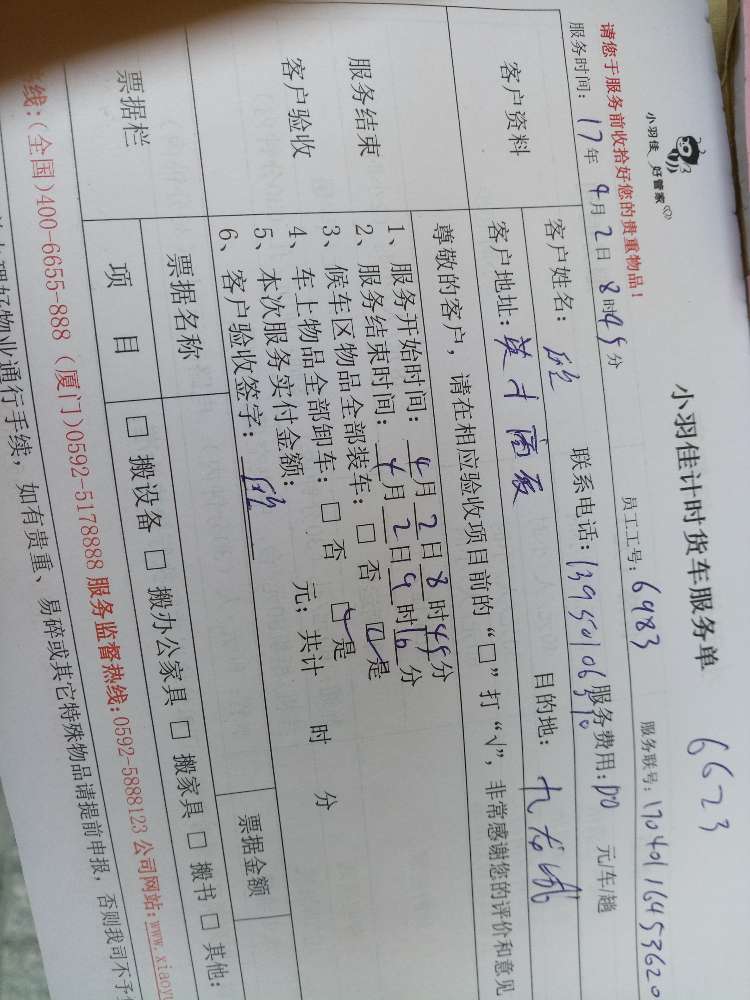 小羽佳 好管家
小羽佳计时货车服务单 6623
请您于服务前收拾好您的贵重物品！
员工工号：6983 服务联号：170401164453620
服务时间：17年4月2日8时45分
客户资料
客户姓名： 联系电话： 服务费用： 元/车/趟
客户地址： 目的地：九龙城
服务结束
客户验收
尊敬的客户，请在相应验收项目前的“□”打“√”，非常感谢您的评价和意见
1、服务开始时间：4月2日8时45分
2、服务结束时间：4月2日9时16分
3、候车区物品全部装车：□ 否 ☑ 是
4、车上物品全部卸车：□ 否 ☑ 是
5、本次服务实付金额： 元；共计 时 分
6、客户验收签字：
票据栏
票据名称 票据金额
项 目 □ 搬设备 □ 搬办公家具 □ 搬家具 □ 搬书 □ 其他：
线：(全国)400-6655-888 (厦门)0592-5178888 服务监督热线：0592-5888123 公司网站：www.xiaoyu
理好物业通行手续，如有贵重、易碎或其它特殊物品请提前申报，否则我司不予